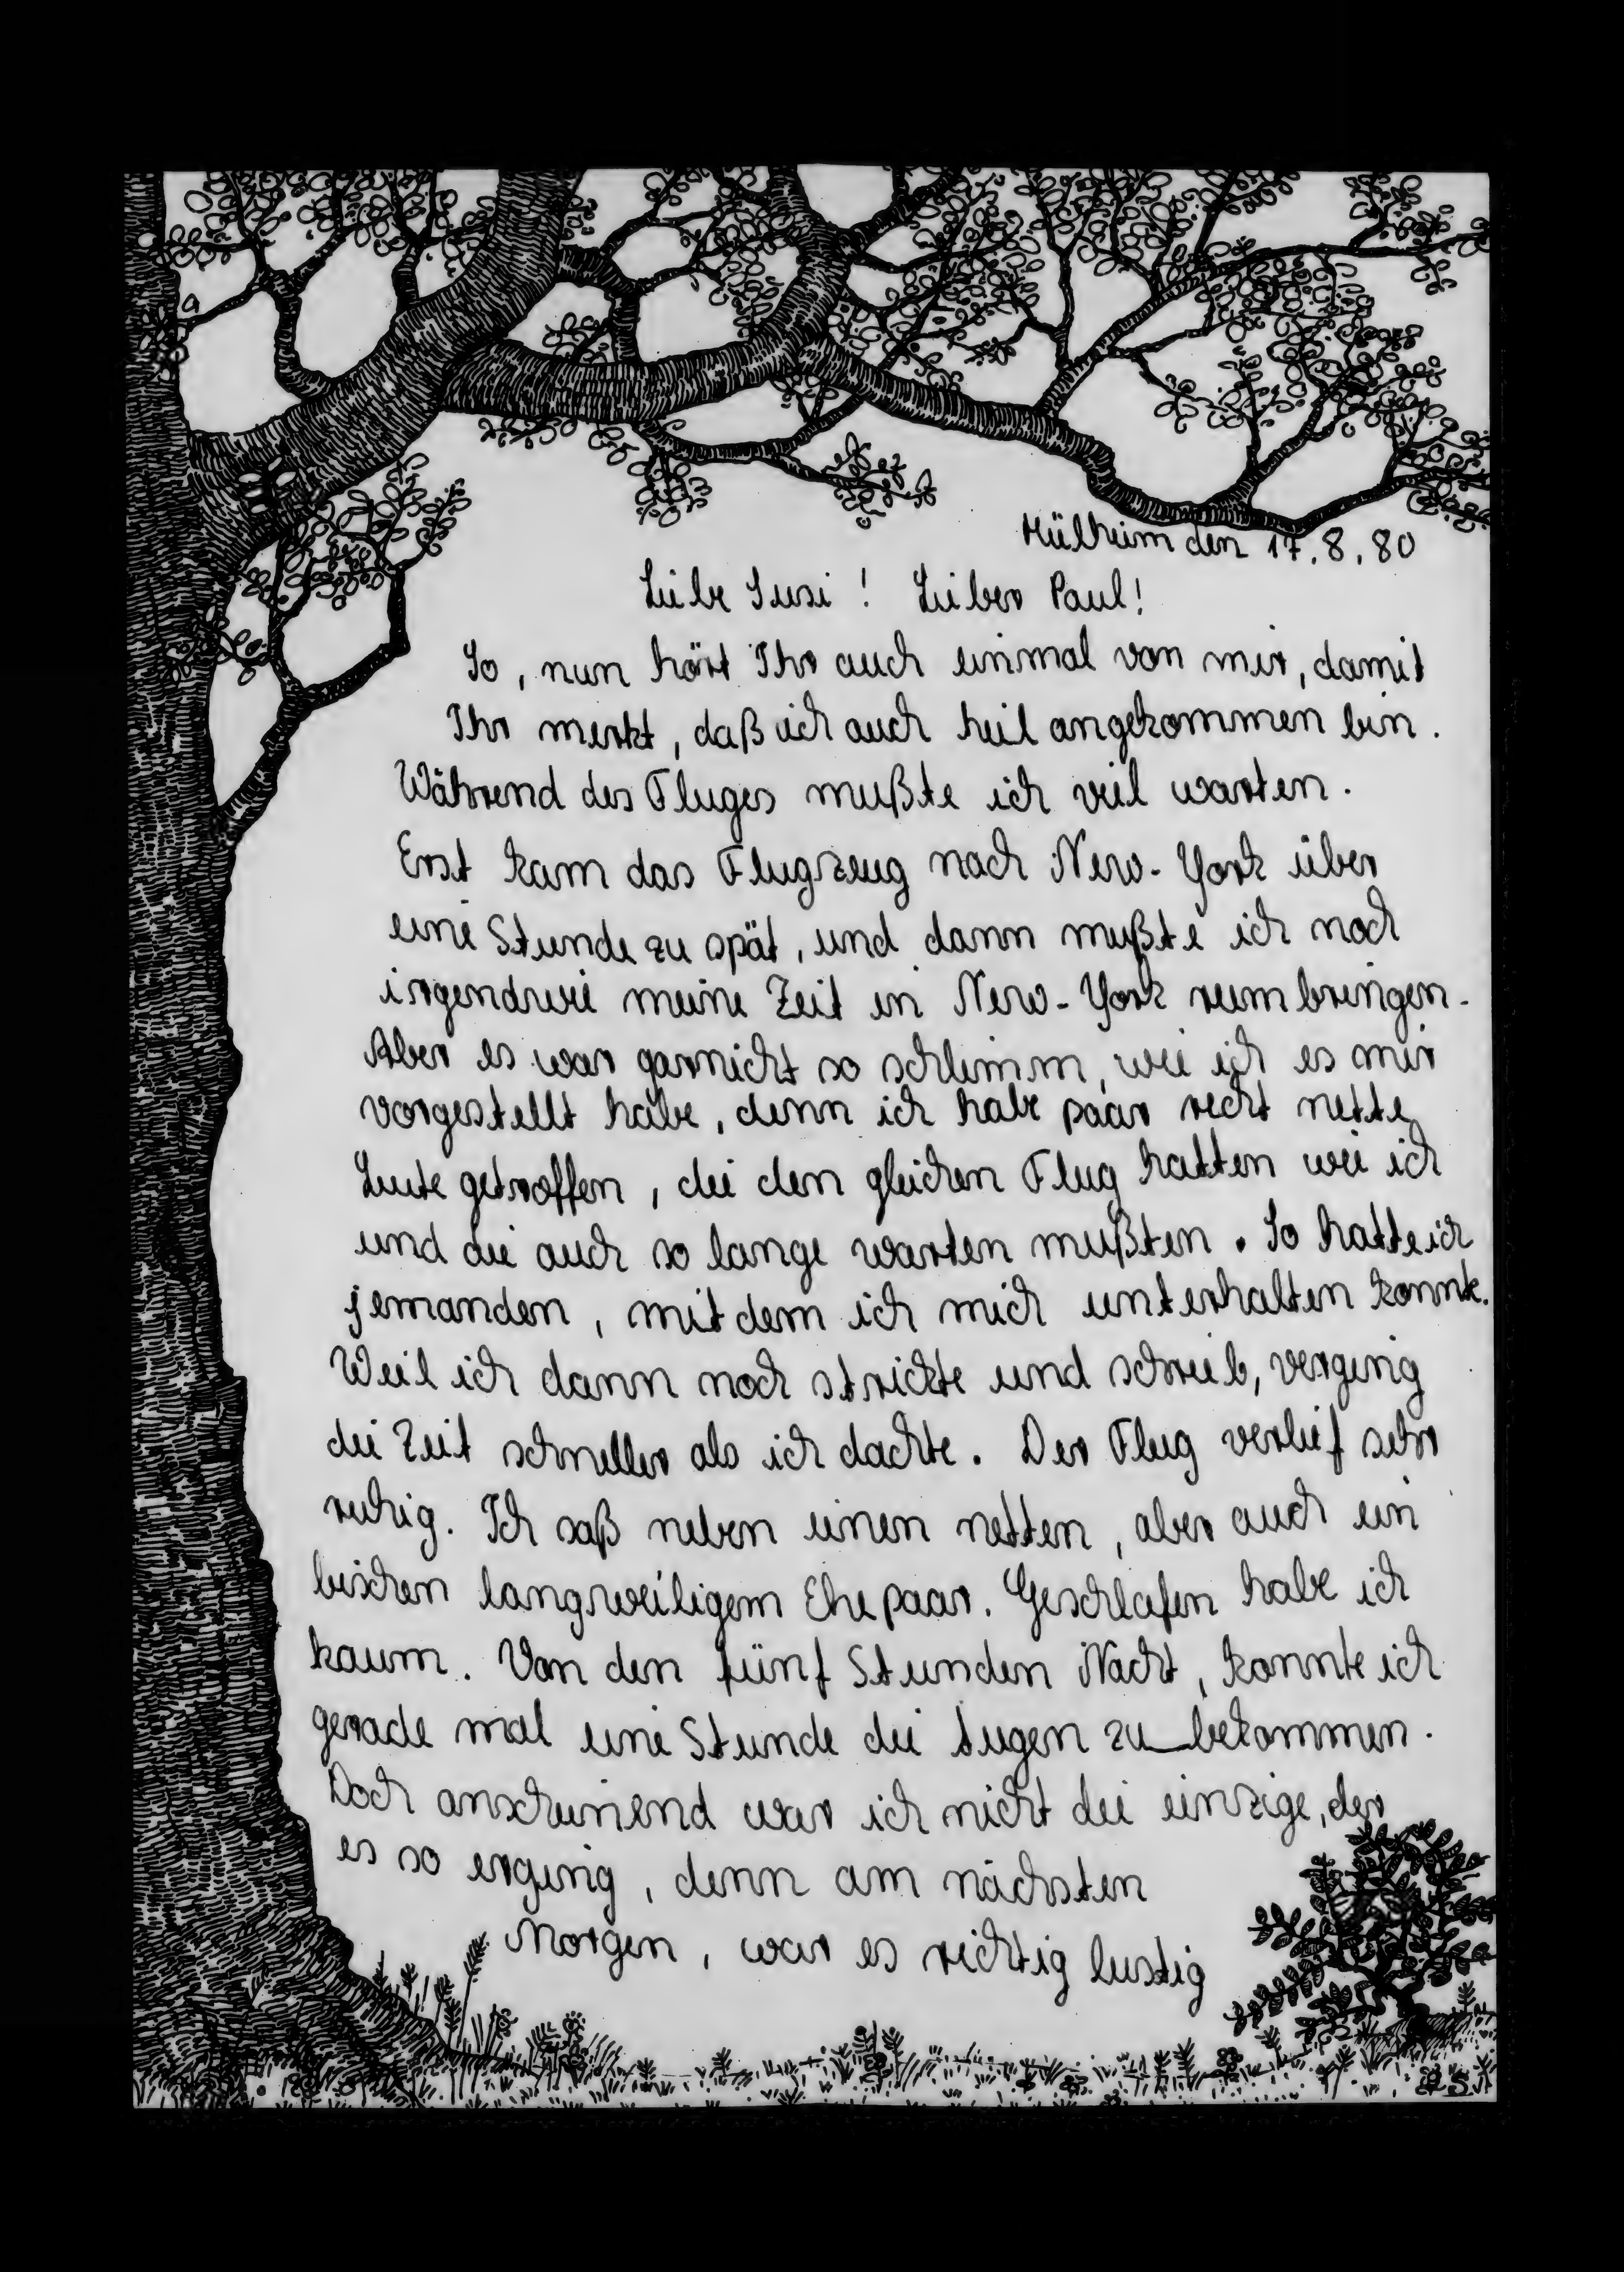 Mülheim den 17.8.80
Liebe Susi! Lieber Paul!
So, nun hört Ihr auch einmal von mir, damit
Ihr merkt, daß ich auch heil angekommen bin.
Während des Fluges mußte ich viel warten.
Erst kam das Flugzeug nach New-York über
eine Stunde zu spät, und dann mußte ich noch
irgendwie meine Zeit in New-York rumbringen.
Aber es war garnicht so schlimm, wie ich es mir
vorgestellt habe, denn ich habe paar recht nette
Leute getroffen, die den gleichen Flug hatten wie ich
und die auch so lange warten mußten. So hatte ich
jemanden, mit dem ich mich unterhalten konnte.
Weil ich dann noch strickte und schrieb, verging
die Zeit schneller als ich dachte. Der Flug verlief sehr
ruhig. Ich saß neben einen netten, aber auch ein
bischen langweiligem Ehepaar. Geschlafen habe ich
kaum. Von den fünf Stunden Nacht, konnte ich
gerade mal eine Stunde die Augen zu bekommen.
Doch anscheinend war ich nicht die einzige, der
es so erging, denn am nächsten
Morgen, war es richtig lustig